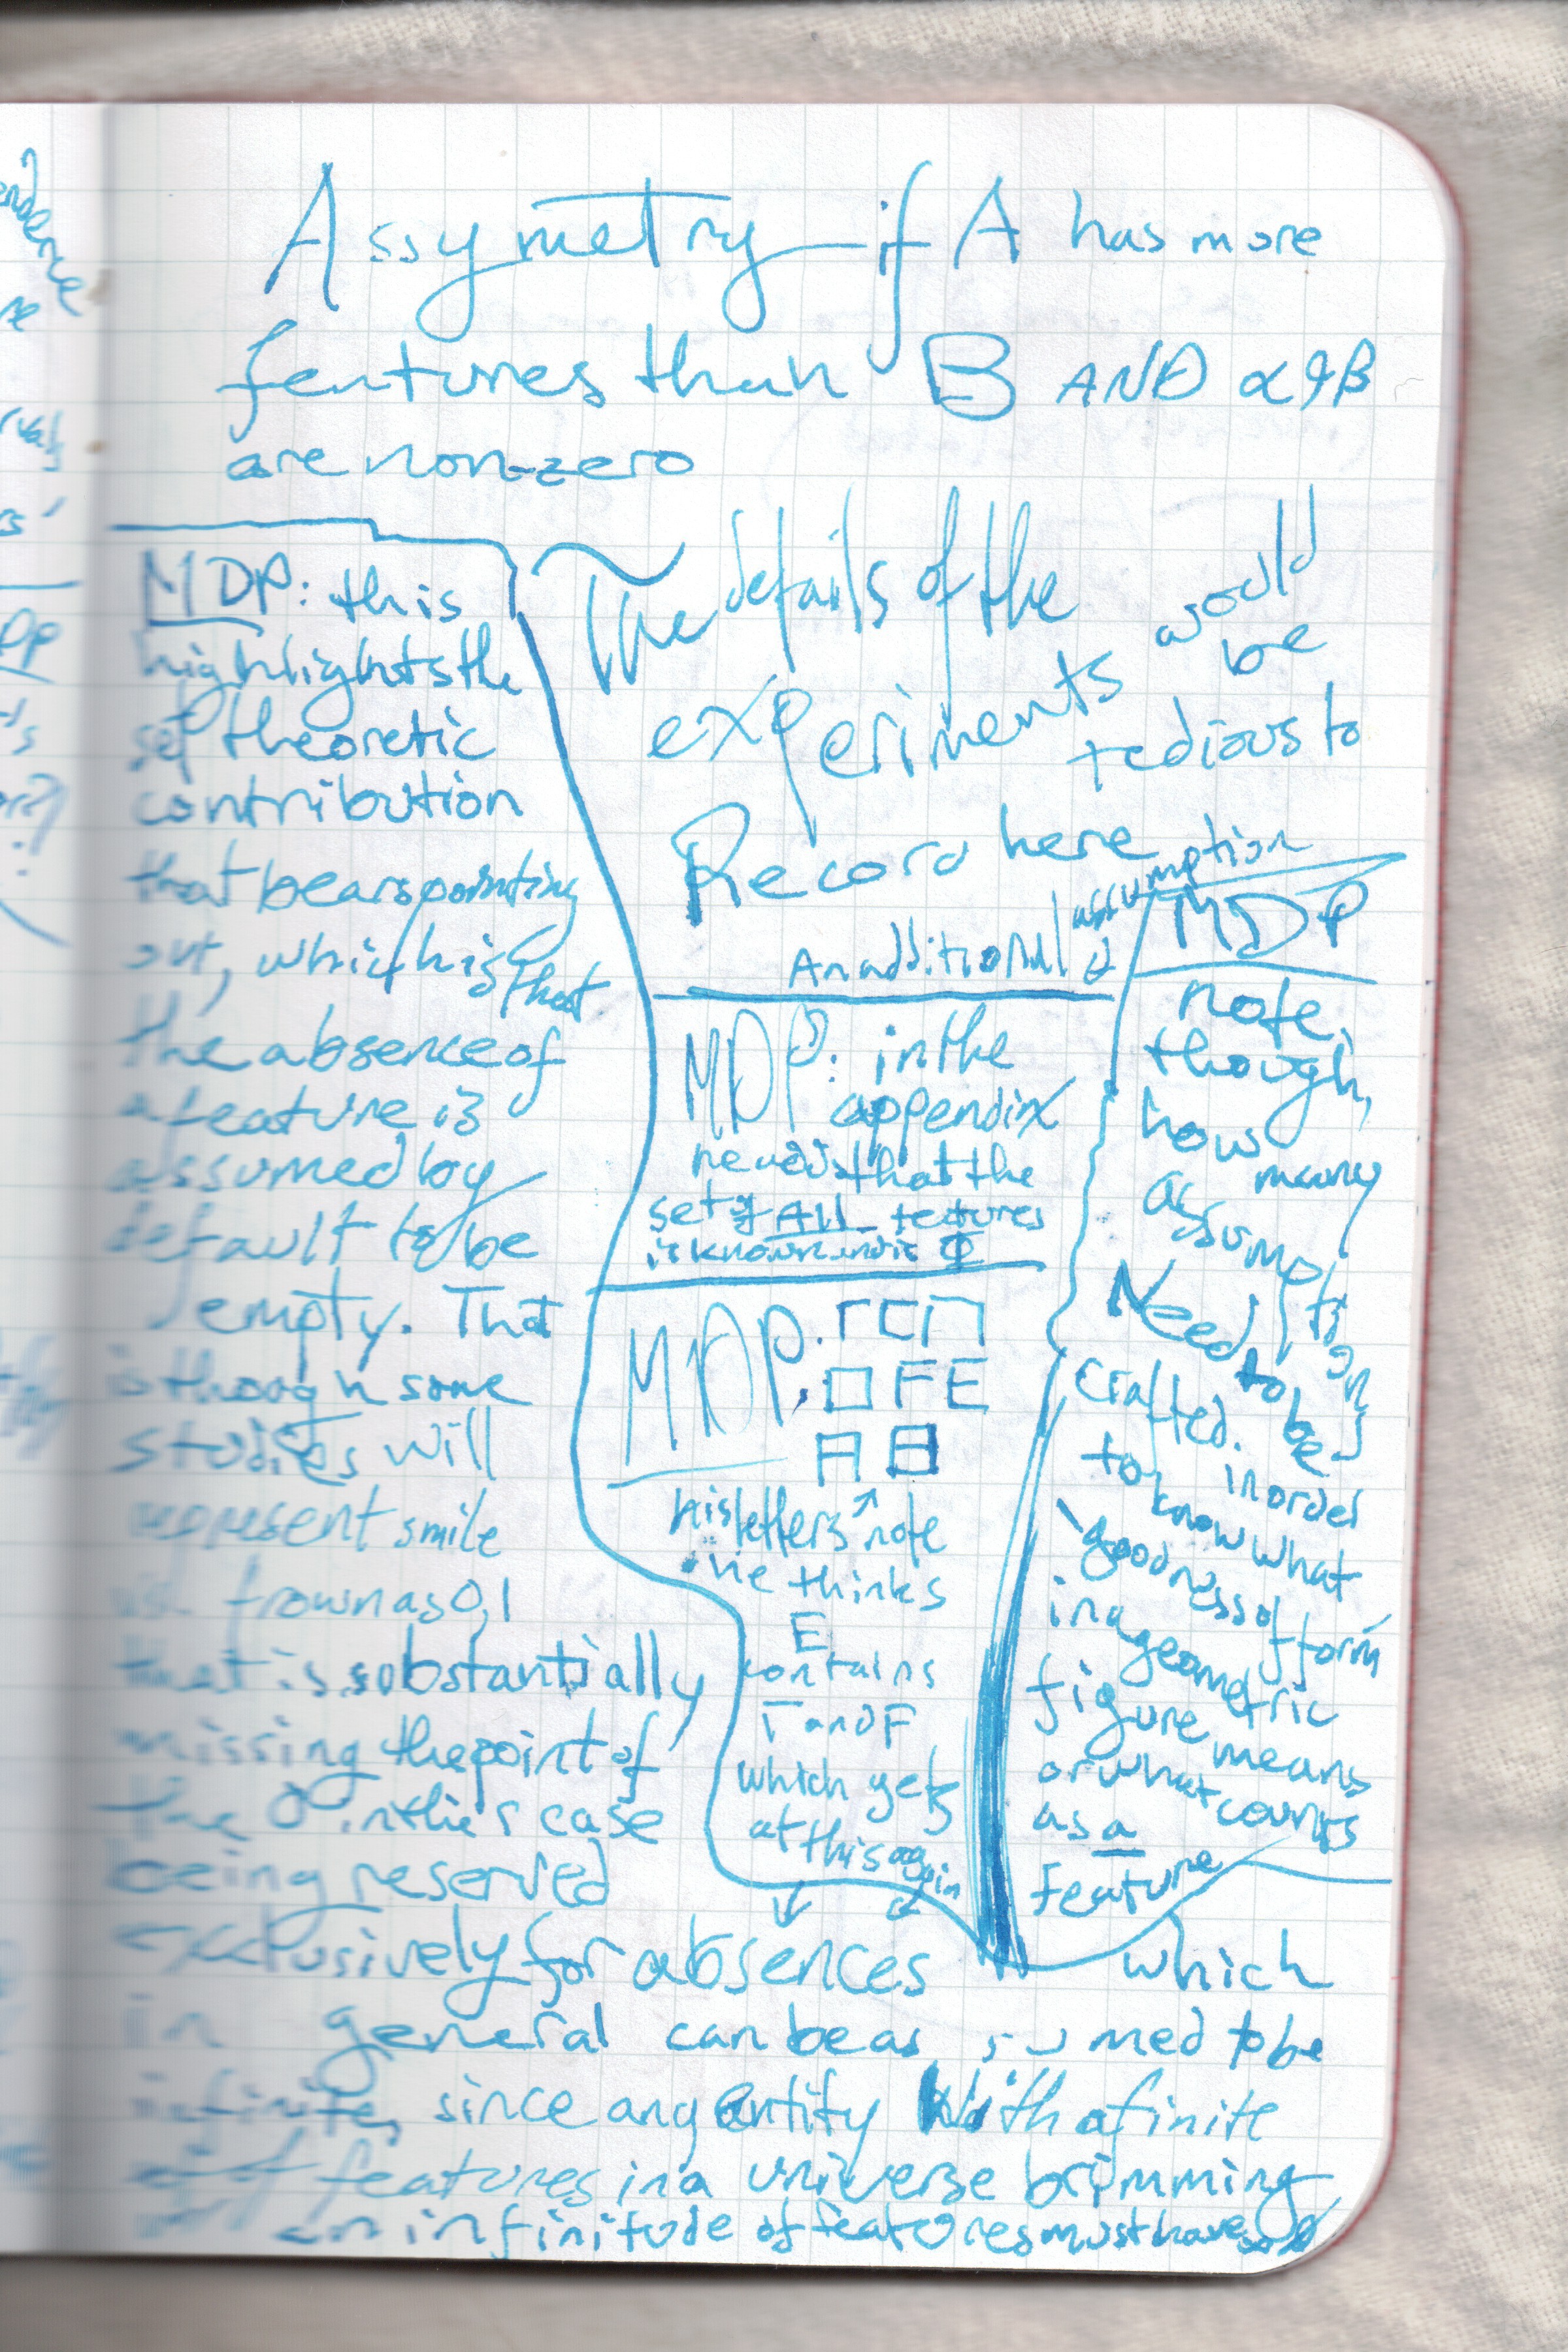 Assymetry if A has more
features than B AND α & β
are non-zero
The details of the
experiments would
be
tedious to
Record here
MDP: this
highlights the
set theoretic
contribution
that bears pointing
out, which is that
the absence of
a feature is
assumed by
default to be
empty. That
is though some
studies will
represent smile
frown as 0,1
that is substantially
missing the point of
the 0 in their case
being reserved
exclusively for absences
in general can be assumed to be
infinite, since any entity with a finite
of features in a universe brimming
an infinitude of features must have
An additional assumption
MDP: in the
appendix
he adds that the
set of ALL features
is known and is Φ
MDP:
F E
his letters note
he thinks
E
contains
Γ and F
which gets
at this again
MDP
note,
though,
how
many
assumptions
Need to be
crafted. in order
to know what
goodness of form
in a geometric
figure means
or what counts
as a
feature
which